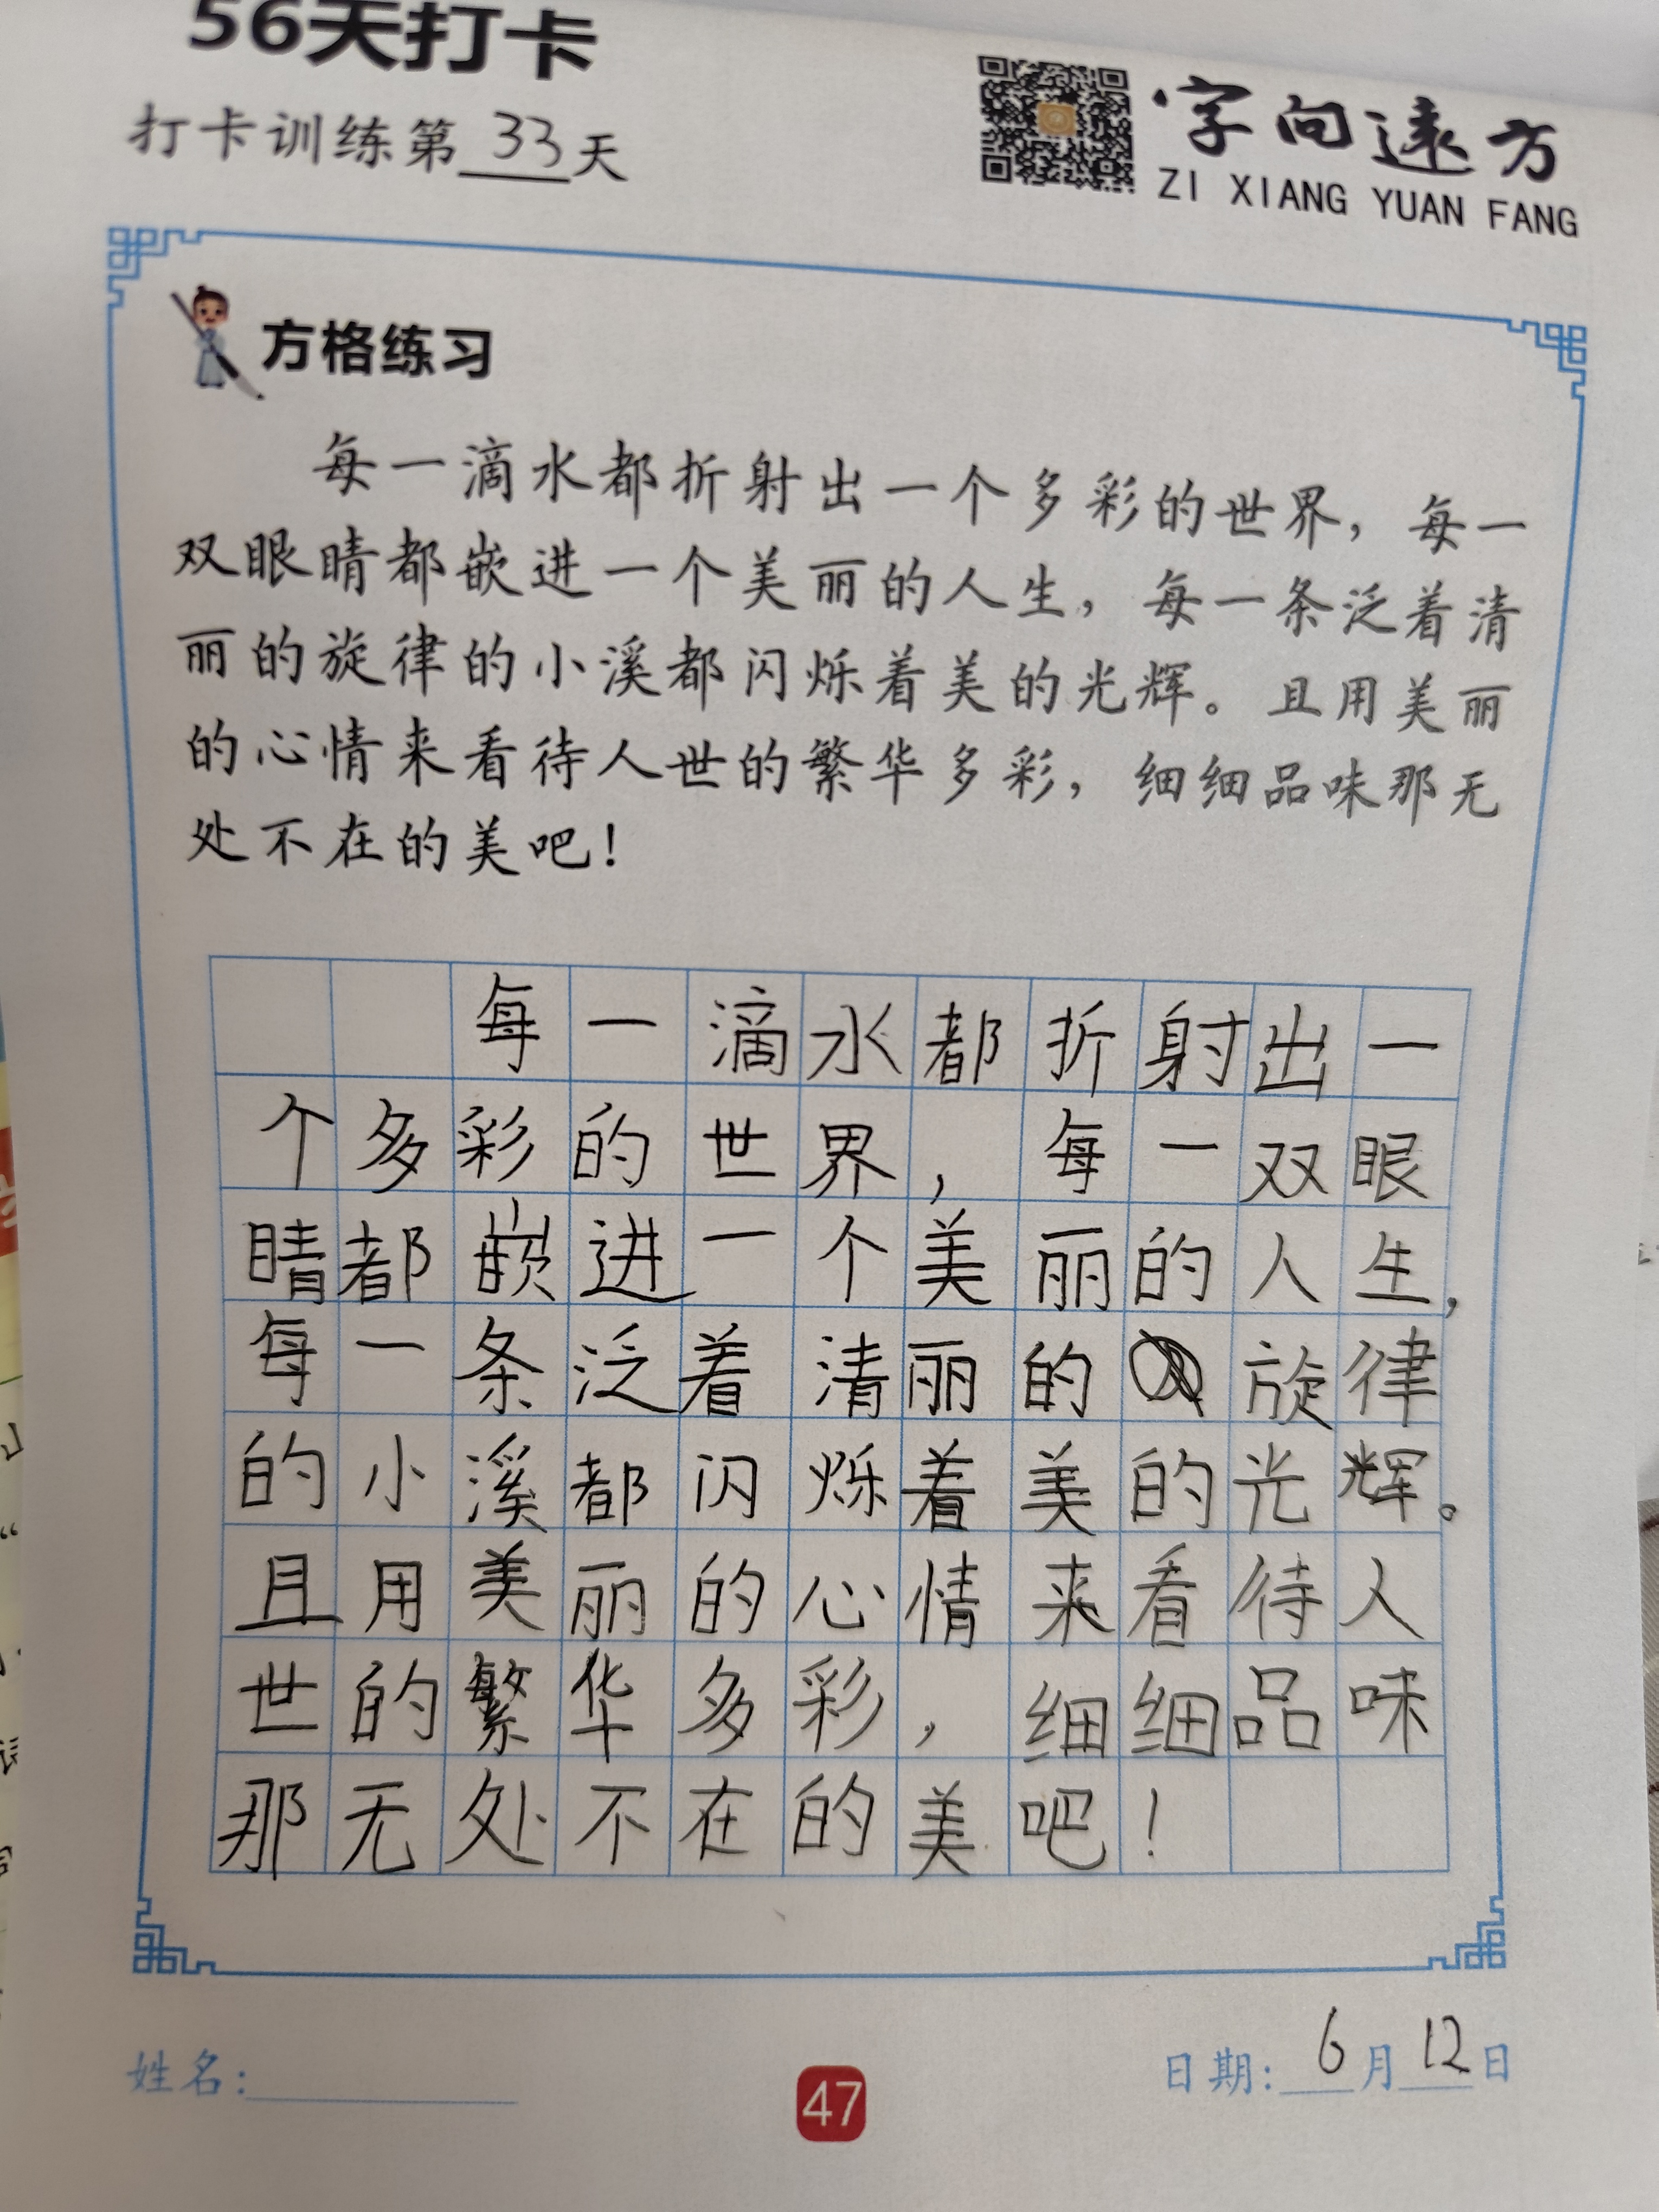 56天打卡
打卡训练第33天
字向远方
ZI XIANG YUAN FANG
方格练习
每一滴水都折射出一个多彩的世界，每一
双眼睛都嵌进一个美丽的人生，每一条泛着清
丽的旋律的小溪都闪烁着美的光辉。且用美丽
的心情来看待人世的繁华多彩，细细品味那无
处不在的美吧！
每一滴水都折射出一
个多彩的世界，每一双眼
睛都嵌进一个美丽的人生，
每一条泛着清丽的旋律
的小溪都闪烁着美的光辉。
且用美丽的心情来看待人
世的繁华多彩，细细品味
那无处不在的美吧！
姓名：
47
日期：6月12日